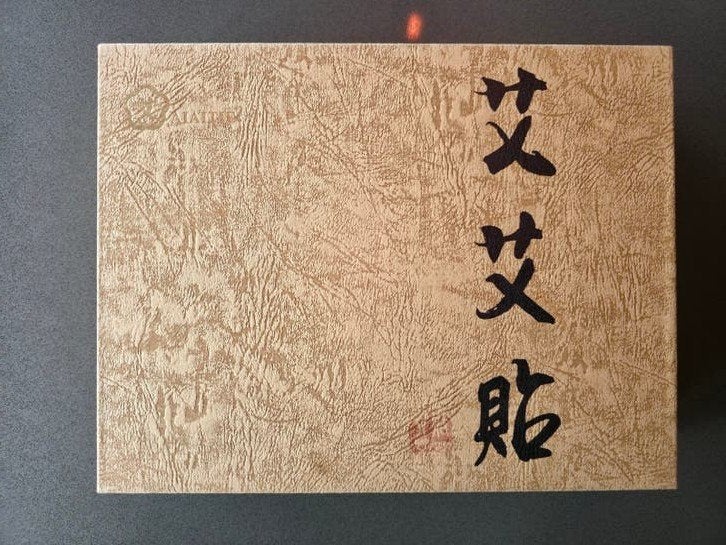 艾艾貼
AIAITIE